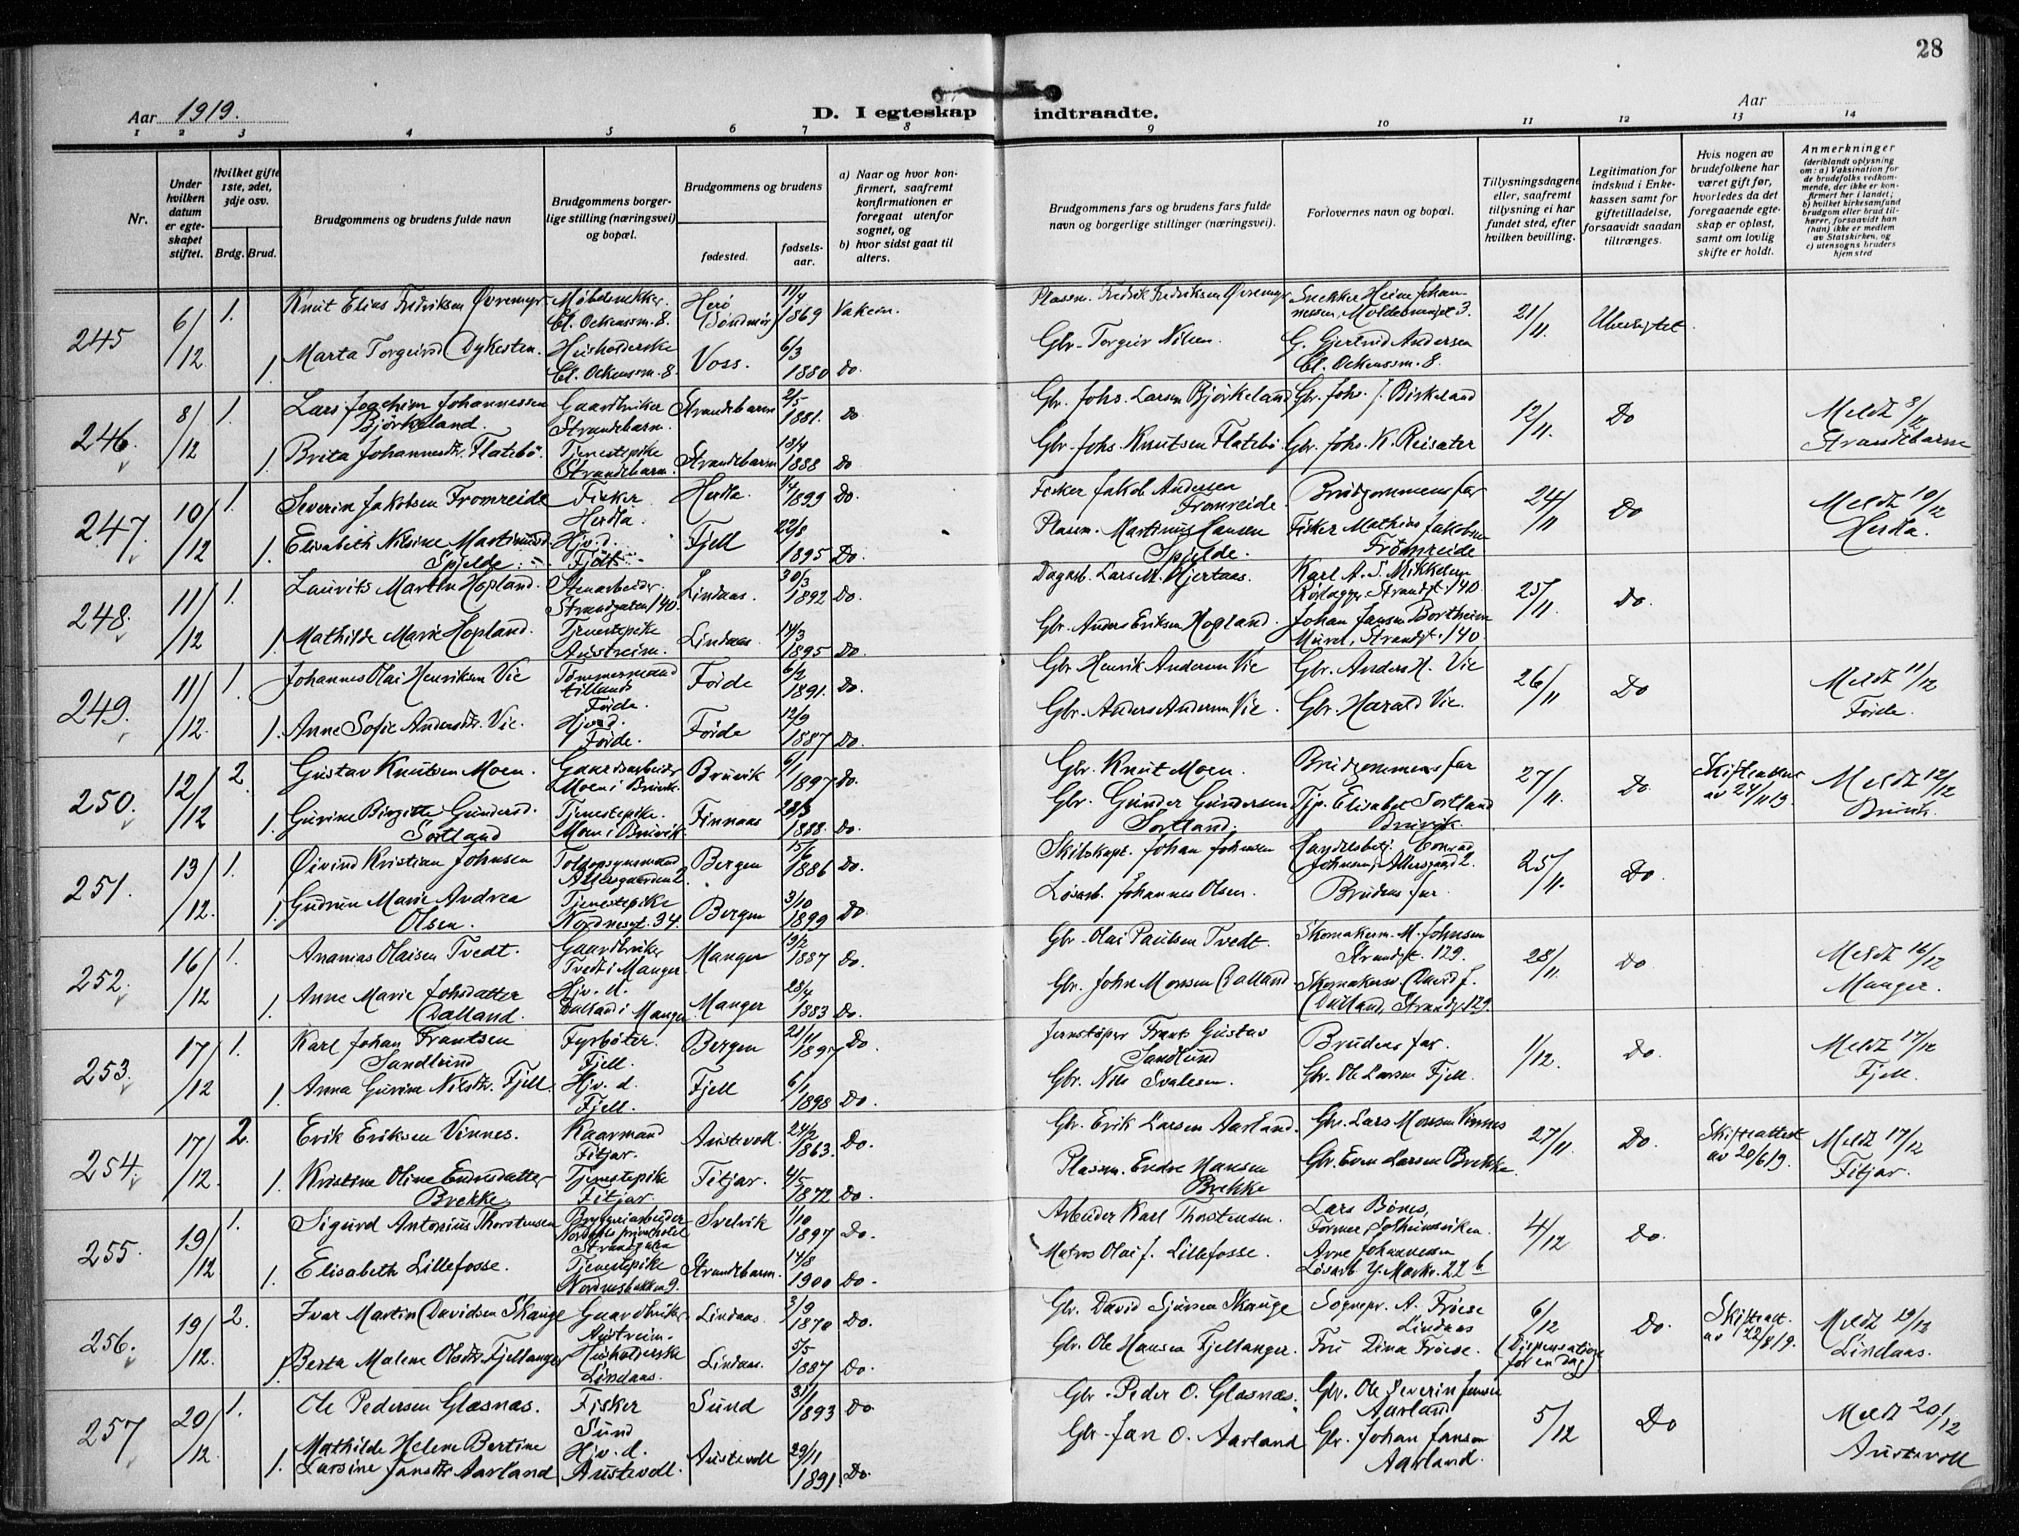 28
Aar 1919.
D. I egteskap indtraadte.
Aar
1 2 3 4 5 6 7 8 9 10 11 12 13 14
Nr.
Under hvilken datum er egteskapet stiftet.
Hvilket gifte 1ste, 2det, 3dje osv.
Brdg. Brud.
Brudgommens og brudens fulde navn
Brudgommens borgerlige stilling (næringsvei) og bopæl.
Brudgommens og brudens
fødested.
fødselsaar.
a) Naar og hvor konfirmert, saafremt konfirmationen er foregaat utenfor sognet, og
b) hvor sidst gaat til alters.
Brudgommens fars og brudens fars fulde navn og borgerlige stillinger (næringsvei).
Forlovernes navn og bopæl.
Tillysningsdagene eller, saafremt tillysning ei har fundet sted, efter hvilken bevilling.
Legitimation for indskud i Enkekassen samt for giftetilladelse, forsaavidt saadan tiltrænges.
Hvis nogen av brudefolkene har været gift før, hvorledes da det foregaaende egteskap er opløst, samt om lovlig skifte er holdt.
Anmerkninger
(deriblandt oplysning om: a) Vaksination for de brudefolks vedkommende, der ikke er konfirmert her i landet; b) hvilket kirkesamfund brudgom eller brud tilhører, forsaavidt han (hun) ikke er medlem av Statskirken, og c) utensogns bruders hjemsted
245 6/12 1. Knut Elias Fredriksen Øvremyr Møbelsnekker Cl. Ockenssm. 8. Herø Søndmør 11/4 1869 Vaksin. Plassm. Fredrik Fredriksen Øvremyr Snekker Heine Johannessen, 3. 21/11
1. Marta Torgeirsd Dykesten. Husholderske Cl. Ockenssm. 8. Voss. 6/3 1880 Do. Gbr. Torgeir Nilsen G. Gjertrud Andersen Cl. Ockenssm. 8.
246. 8/12 1. Lars Joachim Johannessen Bjørkeland. Gaardbruker Strandebarm. Strandebarm 2/5 1881. Do Gbr. Johs. Larsen Bjørkeland Gbr. Johs. J. Birkeland 12/11. Do Meldt 8/12 Strandebarm
1. Brita Johannesdtr. Flatebö. Tjenestepike Strandebarm. Strandebarm 13/4 1888 Do Gbr. Johs. Knutsen Flatebö Gbr. Johs. K. Reisater
247. 10/12 1. Severin Jakobsen Fromreide Fisker Herdla. Herdla. 1/4 1899 Do. Fisker Jakob Andersen Fromreide Brudgommens far 24/11 Do Meldt 10/12 Herdla.
1. Elisabeth Nilsine Martinusd. Spjelde. Hjv. d. Fjell. Fjell 22/8 1895 Do. Plassm. Martinus Hansen Spjelde. Fisker Mathias Jakobsen Frømreide
248. 11/12 1. Laurits Martin Hopland. Stenarbeider Strandgaten 140. Lindaas. 30/3 1892 Do. Dagarb. Lars M. Hjertaas. Karl A. S. Mikkelsen Rørlægger Strandgt. 140 25/11. Do.
1. Mathilde Marie Hopland. Tjenestepike Austreim. Lindaas. 14/3 1895 Do. Gbr. Anders Eriksen Hopland. Johan Jansen Bortheim Murer, Strandgt. 140.
249. 11/12. 1. Johannes Olai Henriksen Vie Tømmermand tillands Førde. Førde 6/2 1891. Do. Gbr. Henrik Andersen Vie Gbr. Anders H. Vie 26/11 Do Meldt 11/12 Førde.
1. Anne Sofie Andersdtr. Vie. Hjv. d. Førde. Førde 12/9 1887 Do. Gbr. Anders Andersen Vie. Gbr. Harald Vie.
250. 12/12 2. Gustav Knutsen Moen. Gaardsarbeider Moen i Bruvik. Bruvik 6/1 1897 Do. Gbr. Knut Moen. Brudgommens far 27/11. Do. Skifteattest av 24/11 19. Meldt 12/12 Bruvik.
1. Gurine Birgitte Gundersd. Sortland Tjenestepike. Moen i Bruvik. Finnaas 28/3 1888. Do. Gbr. Gunder Gundersen Sortland. Tjp. Elisabet Sortland Bruvik.
251. 13/12. 1. Øivind Kristian Johnsen Toldopsynsmand Altersgaarden 2. Bergen 15/6 1886 Do. Skibskapt. Johan Johnsen Handelsbetj. Conrad Johnsen, Altersgaard 2. 25/11. Do.
1. Gudrun Marie Andrea Olsen. Tjenestepike Nordnesgt. 34. Bergen 3/10 1899 Do. Løsarb. Johannes Olsen. Brudens far.
252. 16/12 1. Ananias Olaisen Tvedt. Gaardbruker Tvedt i Manger Manger 19/2 1887 Do. Gbr. Olai Paulsen Tvedt. Skomakerm. M. Johnsen Strandgt. 129. 28/11. Do Meldt 16/12 Manger.
1. Anne Marie Johsdatter Dalland. Hjv. d. Dalland i Manger Manger 28/4 1883 Do. Gbr. John Monsen Dalland. Skomakersv. David J. Dalland, Strandg. 129.
253. 17/12 1. Karl Johan Frantsen Sandlund Fyrbøter. Fjell. Bergen 21/11 1897 Do. Jernstøper Frants Gustav Sandlund Brudens far. 1/12. Do. Meldt 17/12 Fjell.
1. Anna Gurine Nilsdtr. Fjell. Hjv. d. Fjell. Fjell 6/1 1898 Do. Gbr. Nils Svalesen. Gbr. Ole Larsen Fjell.
254. 17/12 2. Erik Eriksen Vinnes. Kaarmand Fitjar. Austevoll 24/2 1863. Do. Gbr. Erik Larsen Aarland. Gbr. Lars Monsen Vinnes 27/11. Do. Skifteattest av 20/6 19. Meldt 17/12 Fitjar.
1. Kristine Oline Endresdatter Brekke Tjenestepike Fitjar. Fitjar. 4/5 1872 Do. Plassm. Endre Hansen Brekke Gbr. Even Larsen Brekke
255. 19/12 1. Sigurd Antonius Thorstensen Bryggeriarbeider Strandgaten Svelvik 1/10 1897 Do. Arbeider Karl Thorstensen. Lars Bønes, Former, Solheimsviken 4/12 Do.
1. Elisabeth Lillefosse. Tjenestepike Nordnesbakken 9. Strandebarm. 14/8 1900 Do. Matros Olai J. Lillefosse. Arne Johannessen Løsarb. Y. Markv. 22 b
256. 19/12. 2. Ivar Martin Davidsen Skauge Gaardbruker Austreim. Lindaas. 3/9 1870 Do. Gbr. David Sjursen Skauge Sognepr. A. Frøese Lindaas 6/12 (Dispensation for en dag) Do. Skifteatt. av 22/8 19. Meldt 19/12 Lindaas.
1. Berta Malene Olsdtr. Fjellanger Husholderske Lindaas. Lindaas. 5/5 1887 Do. Gbr. Ole Hansen Fjellanger. Fru Dina Frøese.
257 20/12 1. Ole Pedersen Glæsnæs. Fisker Sund Sund 31/1 1893 Do Gbr. Peder O. Glæsnæs. Gbr. Ole Severin Jensen Aarland 5/12 Do Meldt 20/12 Austevoll
1. Mathilde Helene Bertine Larsine Jansdtr Aarland Hjv. d. Austevoll. Austevoll 29/11 1891. Do. Gbr. Jan O. Aarland Gbr. Johan Jansen Aarland.